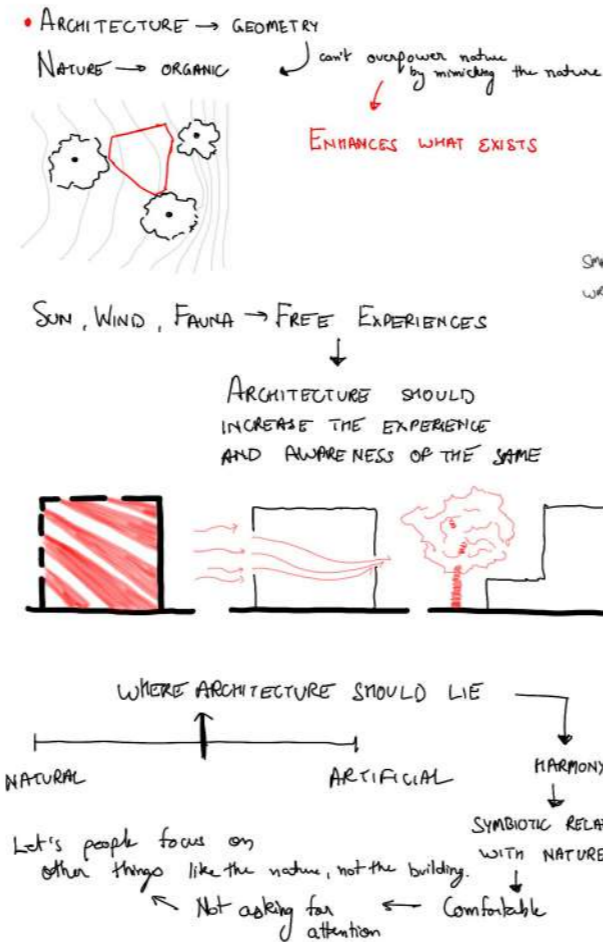 • ARCHITECTURE → GEOMETRY
NATURE → ORGANIC
can't overpower nature
by mimicking the nature
ENHANCES WHAT EXISTS
SUN, WIND, FAUNA → FREE EXPERIENCES
ARCHITECTURE SHOULD
INCREASE THE EXPERIENCE
AND AWARENESS OF THE SAME
WHERE ARCHITECTURE SHOULD LIE
NATURAL
ARTIFICIAL
HARMONY
SYMBIOTIC
WITH NATURE
Comfortable
← Not asking for
attention
Let's people focus on
other things like the nature, not the building.